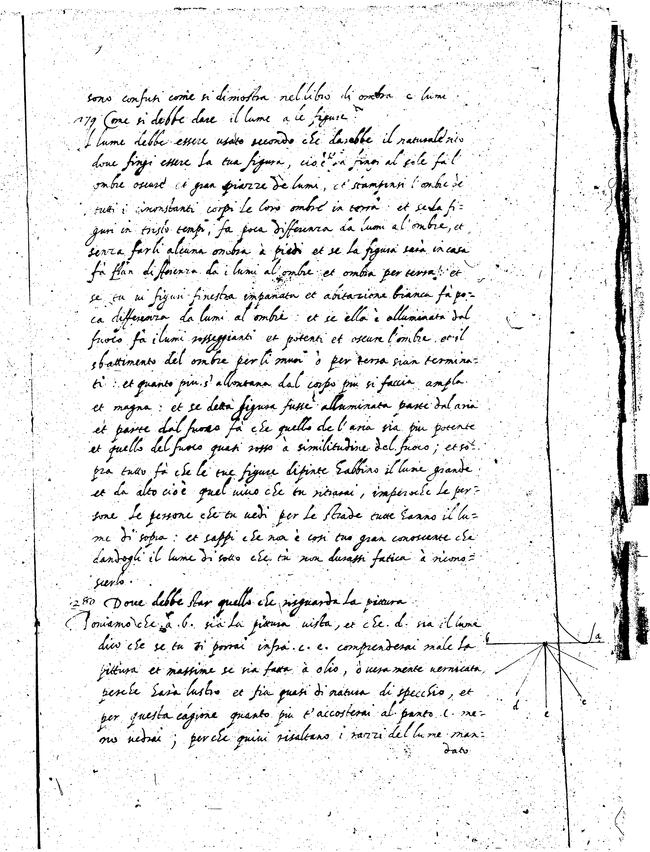 sono confusi come si dimostra nel libro di ombra e lume.
279 Come si debbe dare il lume a le figure
Il lume debbe essere usato secondo che darebbe il naturale sito
dove fingi essere la tua figura, cioè se la fingi al sole fa l'
ombre oscure et gran piazze de lumi, et stampinsi l'ombre de
tutti i circonstanti corpi le loro ombre in terra et se la fi=
gura in tristo tempi, fa poca differenza da lumi al'ombre, et
senza farli alcuna ombra à piedi et se la figura sarà in casa
fa gran differenza da i lumi al ombre et ombra per terra: et
se tu vi figuri finestra impanata et abitazione bianca fa po=
ca differenza da lumi al ombre: et se ella è alluminata dal
fuoco fa i lumi rosseggianti et potenti et oscure l'ombre, et il
sbattimento del ombre per li muri ò per terra sian termina=
ti: et quanto piu s'allontana dal corpo piu si faccia ampla
et magna: et se detta figura fusse alluminata parte dal aria
et parte dal fuoco fa che quello de l'aria sia piu potente
et quello del fuoco quasi rosso à similitudine del fuoco; et so=
pra tutto fà che le tue figure dipinte habbino il lume grande
et da alto cioè quel vivo che tu ritrarai, imperoche le per=
sone le persone che tu vedi per le strade tutte hanno il lu=
me di sopra: et sappi che non è cosi tuo gran conoscente che
dandogli il lume di sotto che tu non durassi fatica à ricono=
scerlo.
280 Dove debbe star quello che risguarda la pittura
Poniamo che a. b. sia la pittura vista, et che. d. sia il lume
dico che se tu ti porrai infra. c. e. comprenderai male la
pittura et massime se sia fatta à olio, ò veramente vernicata,
perche harà lustro et fia quasi di natura di specchio, et
per questa cagione quanto piu t'accosterai al punto c. me=
no vedrai; perche quivi risaltano i razzi del lume man=
dato
b a
d e c